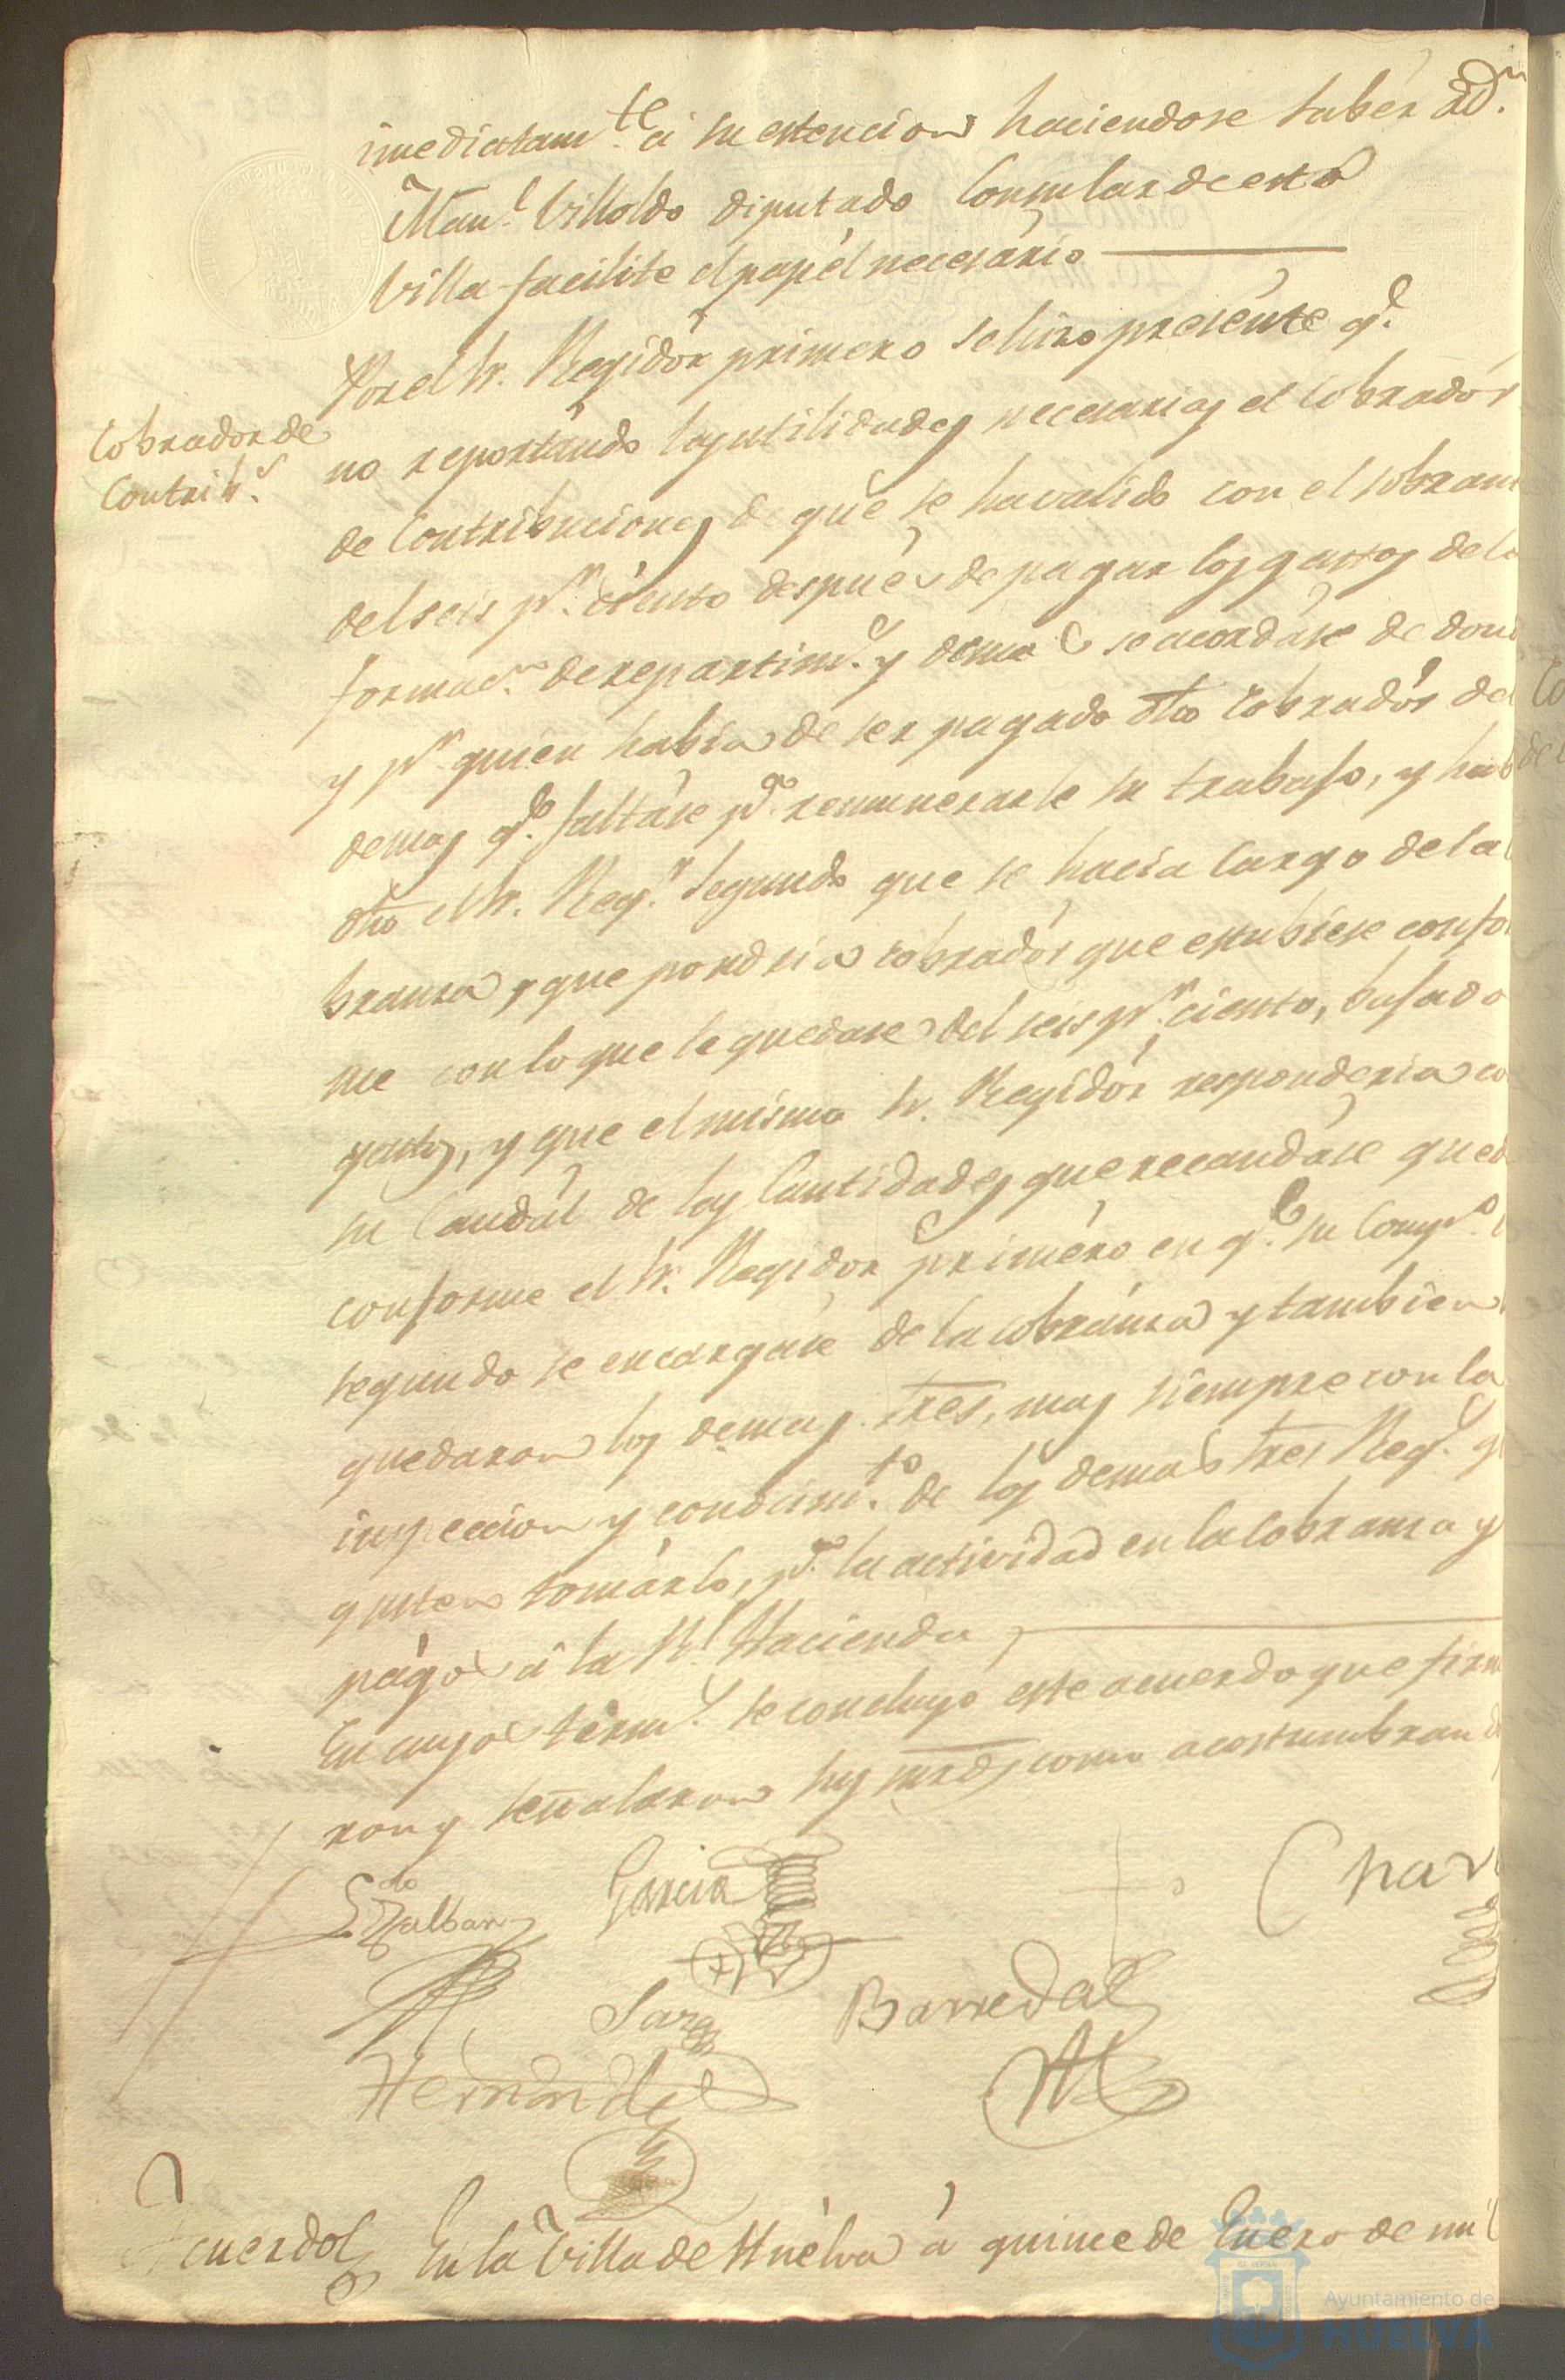 imediatam.te á su estencion haciendose saber á D.n
Man.l Villoldo diputado Consular de esta
Villa facilite el papél necesário
Por el Sr. Regidór primero se hizo presénte q.e
Cobrador de
Contrib.s
no reportándo las utilidades necesarias el Cobradór
de Contribuciones de que se ha valido con el sobran
del seis p.r ciento después de pagar los gastos de la
formac.n de repartim.s y demas se acordáse de don
y p.r quien había de ser pagado dho Cobradór de
demas q.e faltáse p.a remunerarle su trabajo, y hab
dho el Sr. Reg.r Segundo que se hacía Cargo de la
branza y que pondria cobradór que estubiese confo
me con lo que le quedase del seis p.r ciento, bajado
gastos, y que el mismo Sr. Regidór responderia co
su Caudál de las Cantidades que recaudáse qued
conforme el Sr. Regidor priméro en q.e su Comp.o
segundo se encargáse de la cobránza y tambien
quedaron los demas tres, mas siempre con la
inspeccion y conocim.to de los demas tres Reg.s q
gusten tomárlo, p.a la actividad en la Cobranza y
págo á la R.l Hacienda
En cuyos térm.s se concluyó este acuerdo que firm
ron y señalaron sus mrds, como acostumbran
Garcia
Char
Barreda
Hernandez
Acuerdo En la Villa de Huélva á quince de Enero de mil
Ayuntamiento de
HUELVA